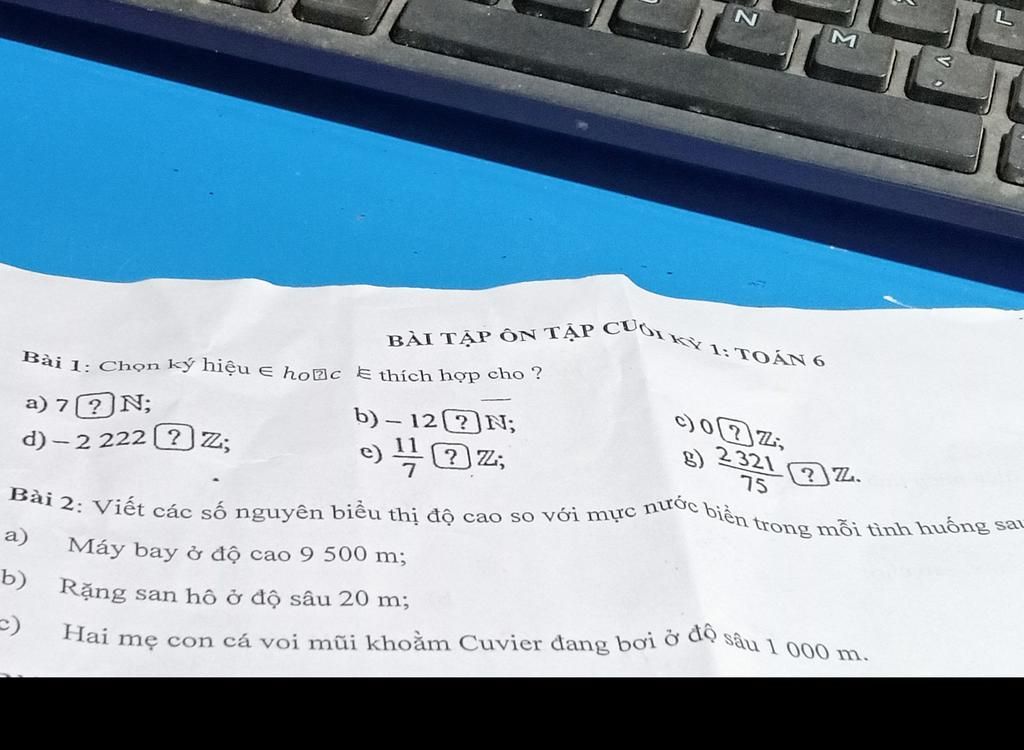 N
M
L
<
,
BÀI TẬP ÔN TẬP CUỐI KỲ 1: TOÁN 6
Bài 1: Chọn ký hiệu ∈ ho⍰c ∉ thích hợp cho ?
a) 7 ? ℕ; b) – 12 ? ℕ; c) 0 ? ℤ;
d) – 2 222 ? ℤ; e) 11/7 ? ℤ; g) 2 321/75 ? ℤ.
Bài 2: Viết các số nguyên biểu thị độ cao so với mực nước biển trong mỗi tình huống sau
a) Máy bay ở độ cao 9 500 m;
b) Rặng san hô ở độ sâu 20 m;
c) Hai mẹ con cá voi mũi khoằm Cuvier đang bơi ở độ sâu 1 000 m.